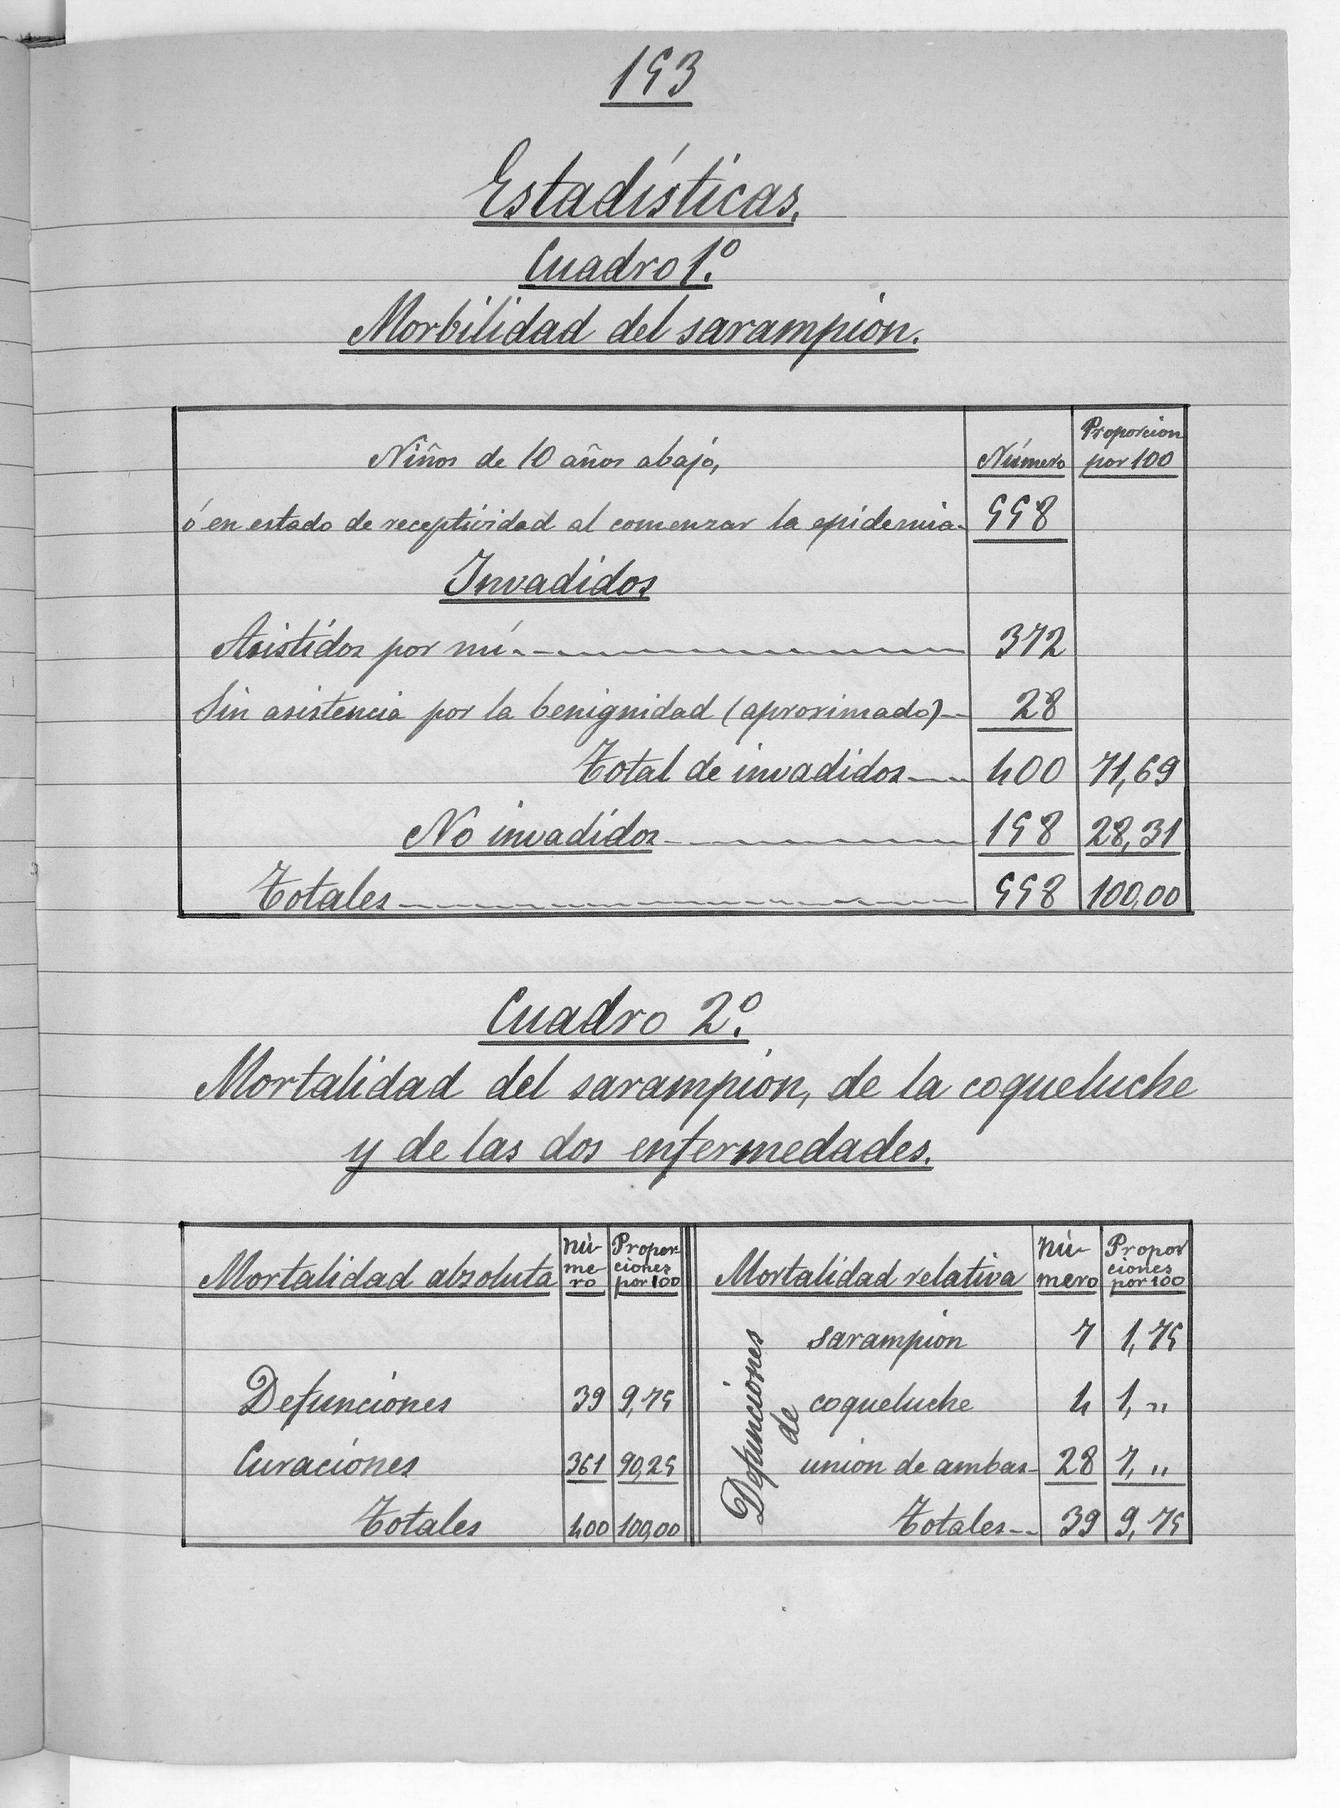 153
Estadísticas.
Cuadro 1.º
Morbilidad del sarampión.
Niños de 10 años abajo, Número Proporcion por 100
ó en estado de receptividad al comenzar la epidemia. 558
Invadidos
Asistidos por mí 372
Sin asistencia por la benignidad (aproximado) 28
Total de invadidos 400 71,69
No invadidos 158 28,31
Totales 558 100,00
Cuadro 2.º
Mortalidad del sarampión, de la coqueluche
y de las dos enfermedades.
Mortalidad absoluta nú-me-ro Propor-ciones por 100 Mortalidad relativa nú-mero Propor ciones por 100
Defunciones de
sarampion 7 1,75
Defunciones 39 9,75 coqueluche 4 1,"
Curaciones 361 90,25 union de ambas 28 7,"
Totales 400 100,00 Totales 39 9,75